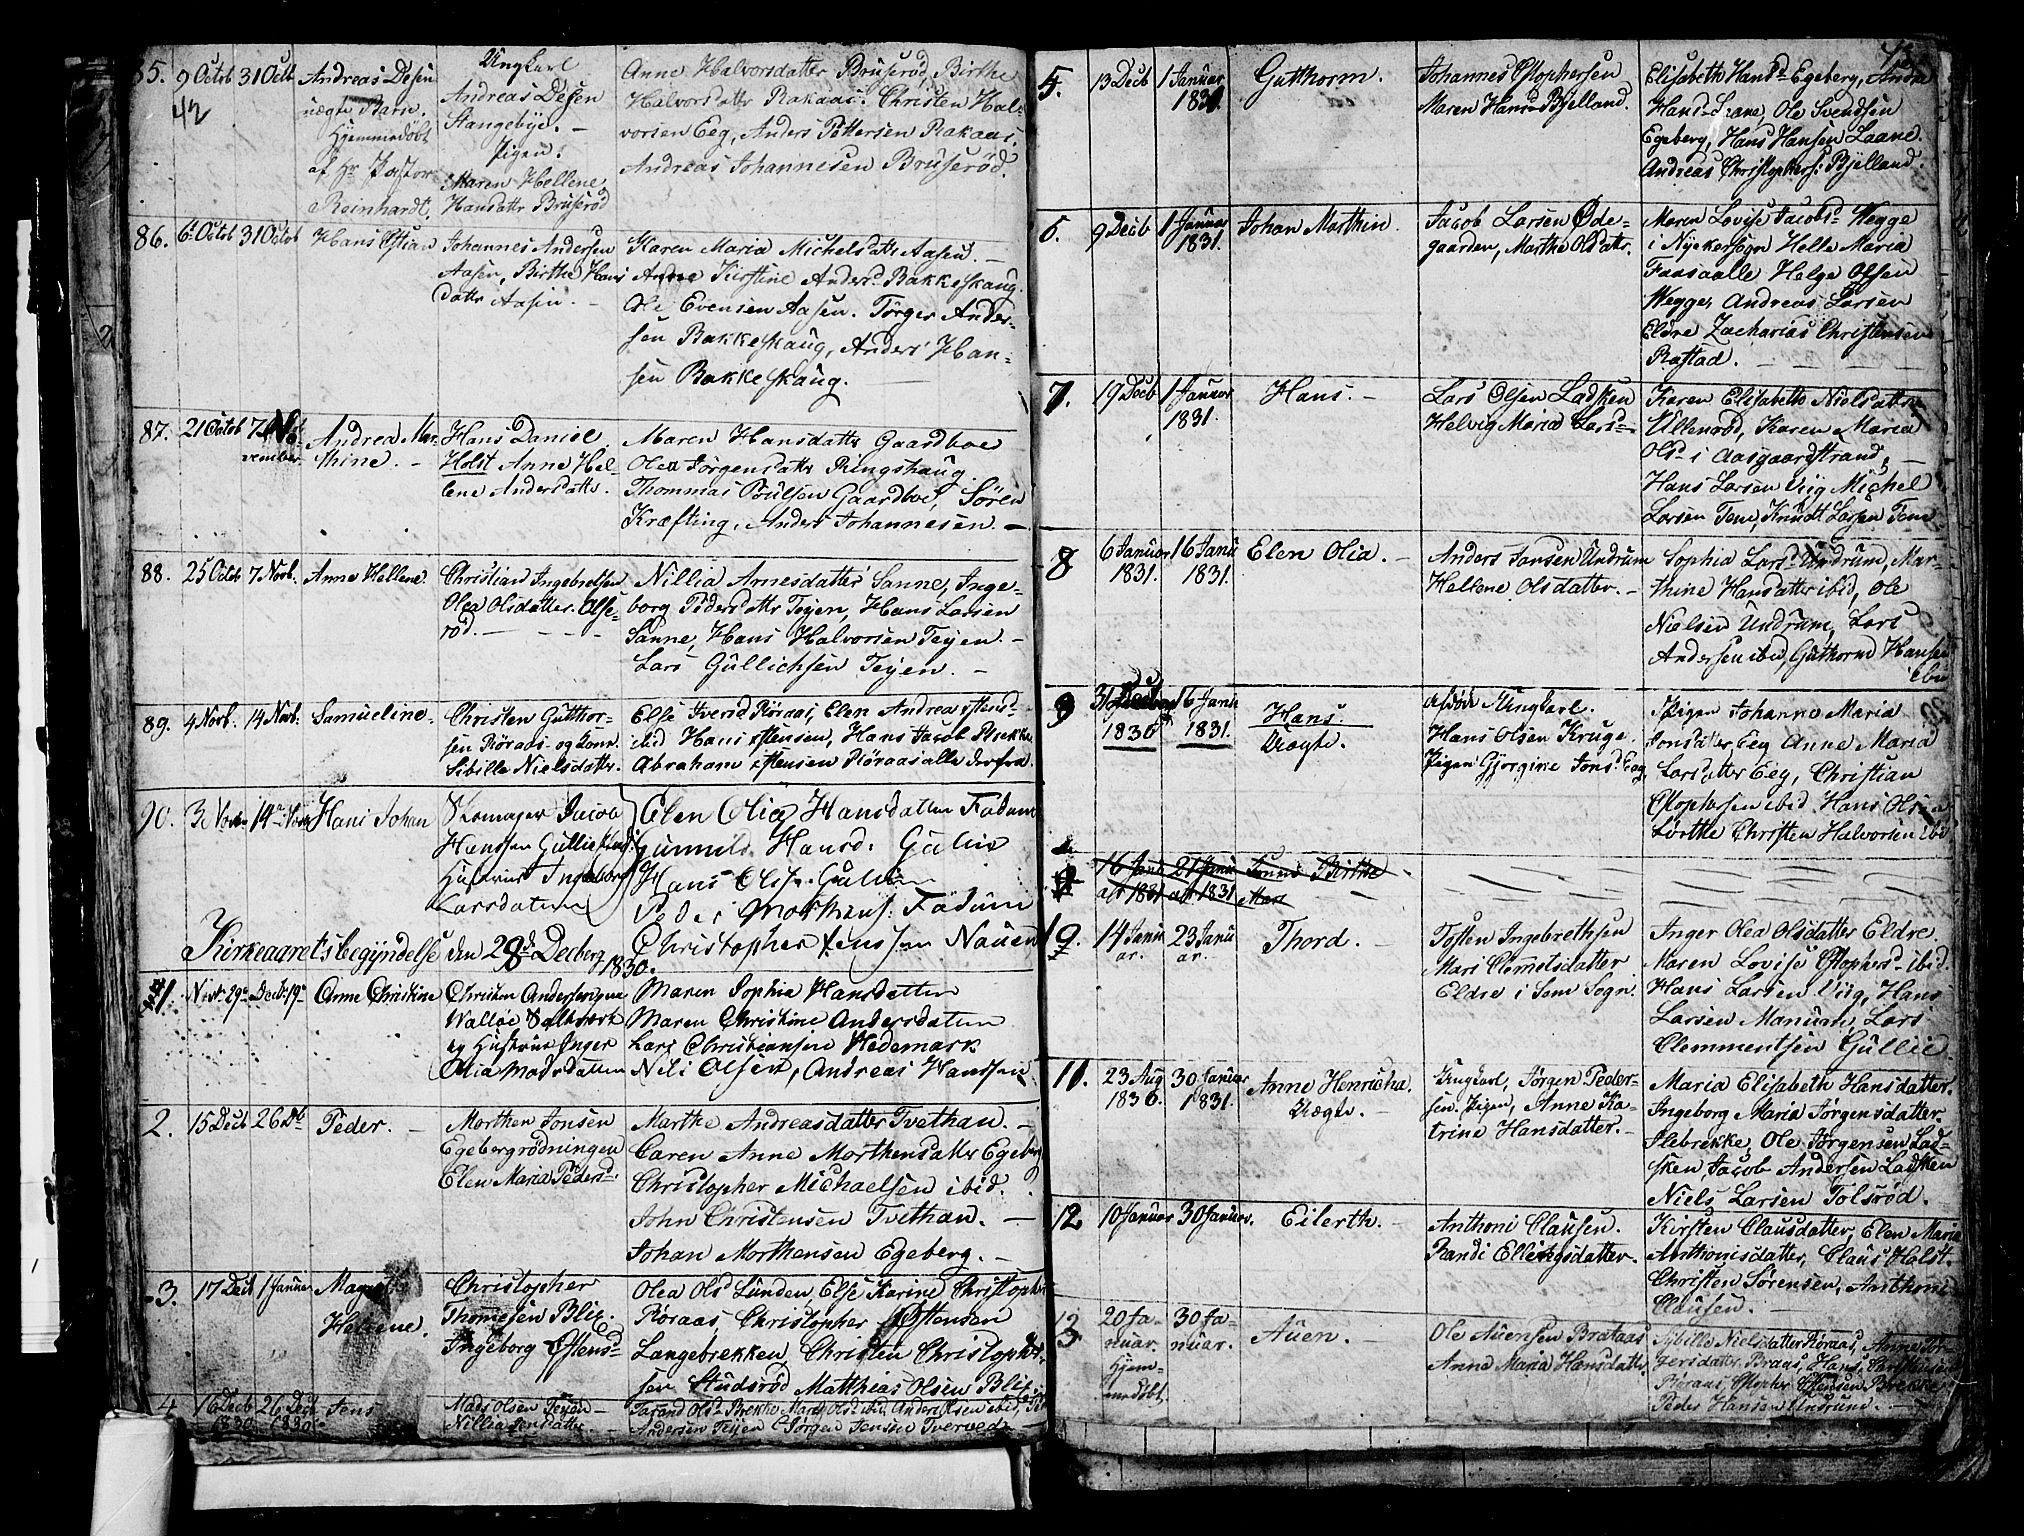 85. 9 Octob 31 Octb Andreas Desen
uægte Barn.
Hjemmedøbt
af Hr Pastor
Reinhardt.
42
Ungkarl
Andreas Desen
Stangebÿe. —
Pigen:
Maren Hellene
Hansdattr Bruserød
Anne Halvorsdatter Bruserød, Birthe
Halvorsdattr Rakaas. Christen Hal-
vorsen Eeg, Anders Pettersen Rakaas.
Andreas Johannesen Bruserød.
86. 6 Octob 31 Octob Hans Cstian
Johannes Andersen
Aasen, Birthe Hans
dattr Aasen. —
Karen Maria Michelsdattr Aasen. —
Andrea Kirstine Andersd. Bakkeskaug.
Ole Evensen Aasen. Törger Ander-
sen Bakkeskaug, Anders Han-
sen Bakkeskaug. —
87. 21 Octob 7 No-
vember. Andrea Mar-
thine. —
Hans Daniel
Holst Anne Hel-
lene Andersdattr.
Maren Hansdattr Gaardboe
Olea Jörgensdattr Ringshaug
Thommas Poulsen Gaardboe, Sören
Kræfting, Anders Johannesen. —
88. 25 Octob 7 Novb. Anne Hellene.
Christian Ingebretsen
Olea Olsdatter. Olse-
rød. — - - -
Nillia Arnesdatter Sanne, Inge-
borg Pedersdattr Tejen, Hans Larsen
Sanne, Hans Halvorsen Tejen. —
Lars Gullichsen Tejen. —
89. 4 Novb. 14 Novb. Samueline.
Christen Gutthor-
sen Röraas og Kone
Sibille Nielsdattr.
Else Iversd Röraas, Elen Andrea Ostensd-
ibid Hans Ostensen, Hans Jacob Brekke
Abraham Ostensen Röraas alle derfra.
90. 3 Novbr 14 Novb Hans Johan
Skomager Jacob
Hanssen Gulliksrud
Hustrue Ingeborg
Larsdatter
Elen Olia Hansdatter Fadum
Gunnild Hansd: Gulie
Hans Ols. Gullie
Peder Morthens: Fadum
Christopher Jenssen Nauen
Kirkeaarets begÿndelse den 28de Decbr 1830.
1. Novb. 29 Decb. 19 Anne Christine
Christen Andersen paa
Walløe Saltværk
og Hustrue Inger
Olia Madsdatter
Maren Sophia Hansdatter
Maren Christine Andersdatter
Lars Christiansen Hedemark
Nils Olsen, Andreas Hanssen
2. 15 Decb 26 Db Peder. —
Morthen Jonsen
Egebergrødningen
Elen Maria Pedersd.
Marthe Andreasdatter Tvethan. —
Caren Anne Morthensdatter Egeberg
Christopher Michaelsen ibid.
John Christensen Tvethan. —
Johan Morthensen Egeberg. —
3. 17 Decb 1 Januar
Hellene.
Christopher
Thomesen Blix.
Ingeborg Ostensd-
Olea Olsd Lunden, Else Karine Christophs
Röraas, Christopher Ostensen
Langebrekken, Christen Christopher-
sen Studsrød Matthias Olsen Blix
4 16 Decb 26 Decb Jens
1830. 1830.
Mads Olsen Teijen —
Nillia Jensdattr. —
Tarand Olsd. Brekke Maren Olsd ibid, Anders Olsen ibid,
Andersen Teijen Jörgen Jensen Tverved
5. 13 Decb 1 Januar Gutthorm.
1831.
Johannes Cstophersen
Maren Hansd Bjelland.
Elisabeth Hansd. Egeberg, Andrea
Hansd Laane, Ole Svendsen
Egeberg, Hans Hansen Laane.
Andreas Christophers: Bjelland.
6. 9 Decb 1 Januar Johan Marthin.
1831.
Jacob Larsen Øde-
gaarden, Marthe Olsdattr.
Maren Lovise Jacobsd. Wegge
i Nÿkersogn Helle Maria
Faasaalle Helge Olsen
Wegge, Andreas Larsen
Eldre Zacharias Christensen
Rastad. —
7. 19 Decb 1 Januar Hans. —
1831.
Lars Olsen Ladsken
Helvig Maria Larsd-
Karen Elisabeth Nielsdatter
Ullenrød, Karen Maria
Olsd i Aasgaardstrand, —
Hans Larsen Viig, Michel
Larsen Tem, Knudt Larsen Tem
8 6 Januar 16 Janu Elen Olia. —
1831. 1831.
Anders Jansen Undrum
Hellene Olsdatter. —
Sophia Larsd Undrum, Mar-
thine Hansdatter ibid, Ole
Nielsen Undrum, Lars
Andersen ibid, Guthorm Hansen
ibid
9 31 Decbr 16 Janu Hans.
1830 1831. Uægte.
Ungkarl.
Hans Olsen Kruge.
Pigen Gjorgine Jonsd. Eeg
Pigen Johanne Maria
Jonsdatter Eeg Anne Maria
Larsdatter Eeg, Christian
Cstophersen ibid. Hans Olsen
Christen Halvorsen ibid
16 Janu 21 Janu Birthe
a/r 1831 a/r 1831. Mari
10. 14 Janu 23 Janu Thord. —
ar. ar.
Tosten Ingebrethsen
Mari Clemetsdatter
Eldre i Sem Sogn.
Inger Olea Olsdatter Eldre
Maren Lovise Cstophersd- ibid.
Hans Larsen Viig, Hans
Larsen Manum, Lars
Clemmentsen Gullie.
11. 23 Aug 30 Januar Anne Henricha.
1830. 1831. Uægte. —
Ungkarl, Jörgen Peder-
sen. Pigen, Anne Ka-
trine Hansdatter. —
Maria Elisabeth Hansdatter.
Ingeborg Maria Jörgensdatter.
Slebrekke, Ole Jörgensen Lad-
sken, Jacob Andersen Ladsken
Niels Larsen Tolsrød.
12 10 Januar 30 Januar. Eilerth. —
Anthoni Clausen.
Randi Ellingsdatter.
Kirsten Clausdatter, Elen Maria
Anthonisdatter, Claus Holst.
Christen Sörensen, Anthoni
Clausen. —
13 20 Ja- 30 Ja- Auen. —
nuar. nuar.
Hjem-
medøbt.
Ole Auensen Brataas
Anne Maria Hansdatter
Sybille Nielsdatter Röraas, Anne Tor-
gersdatter Braas, Hans
Röraas, Cstopher Ostensen Brekke
Peder Hansen Undrum. —